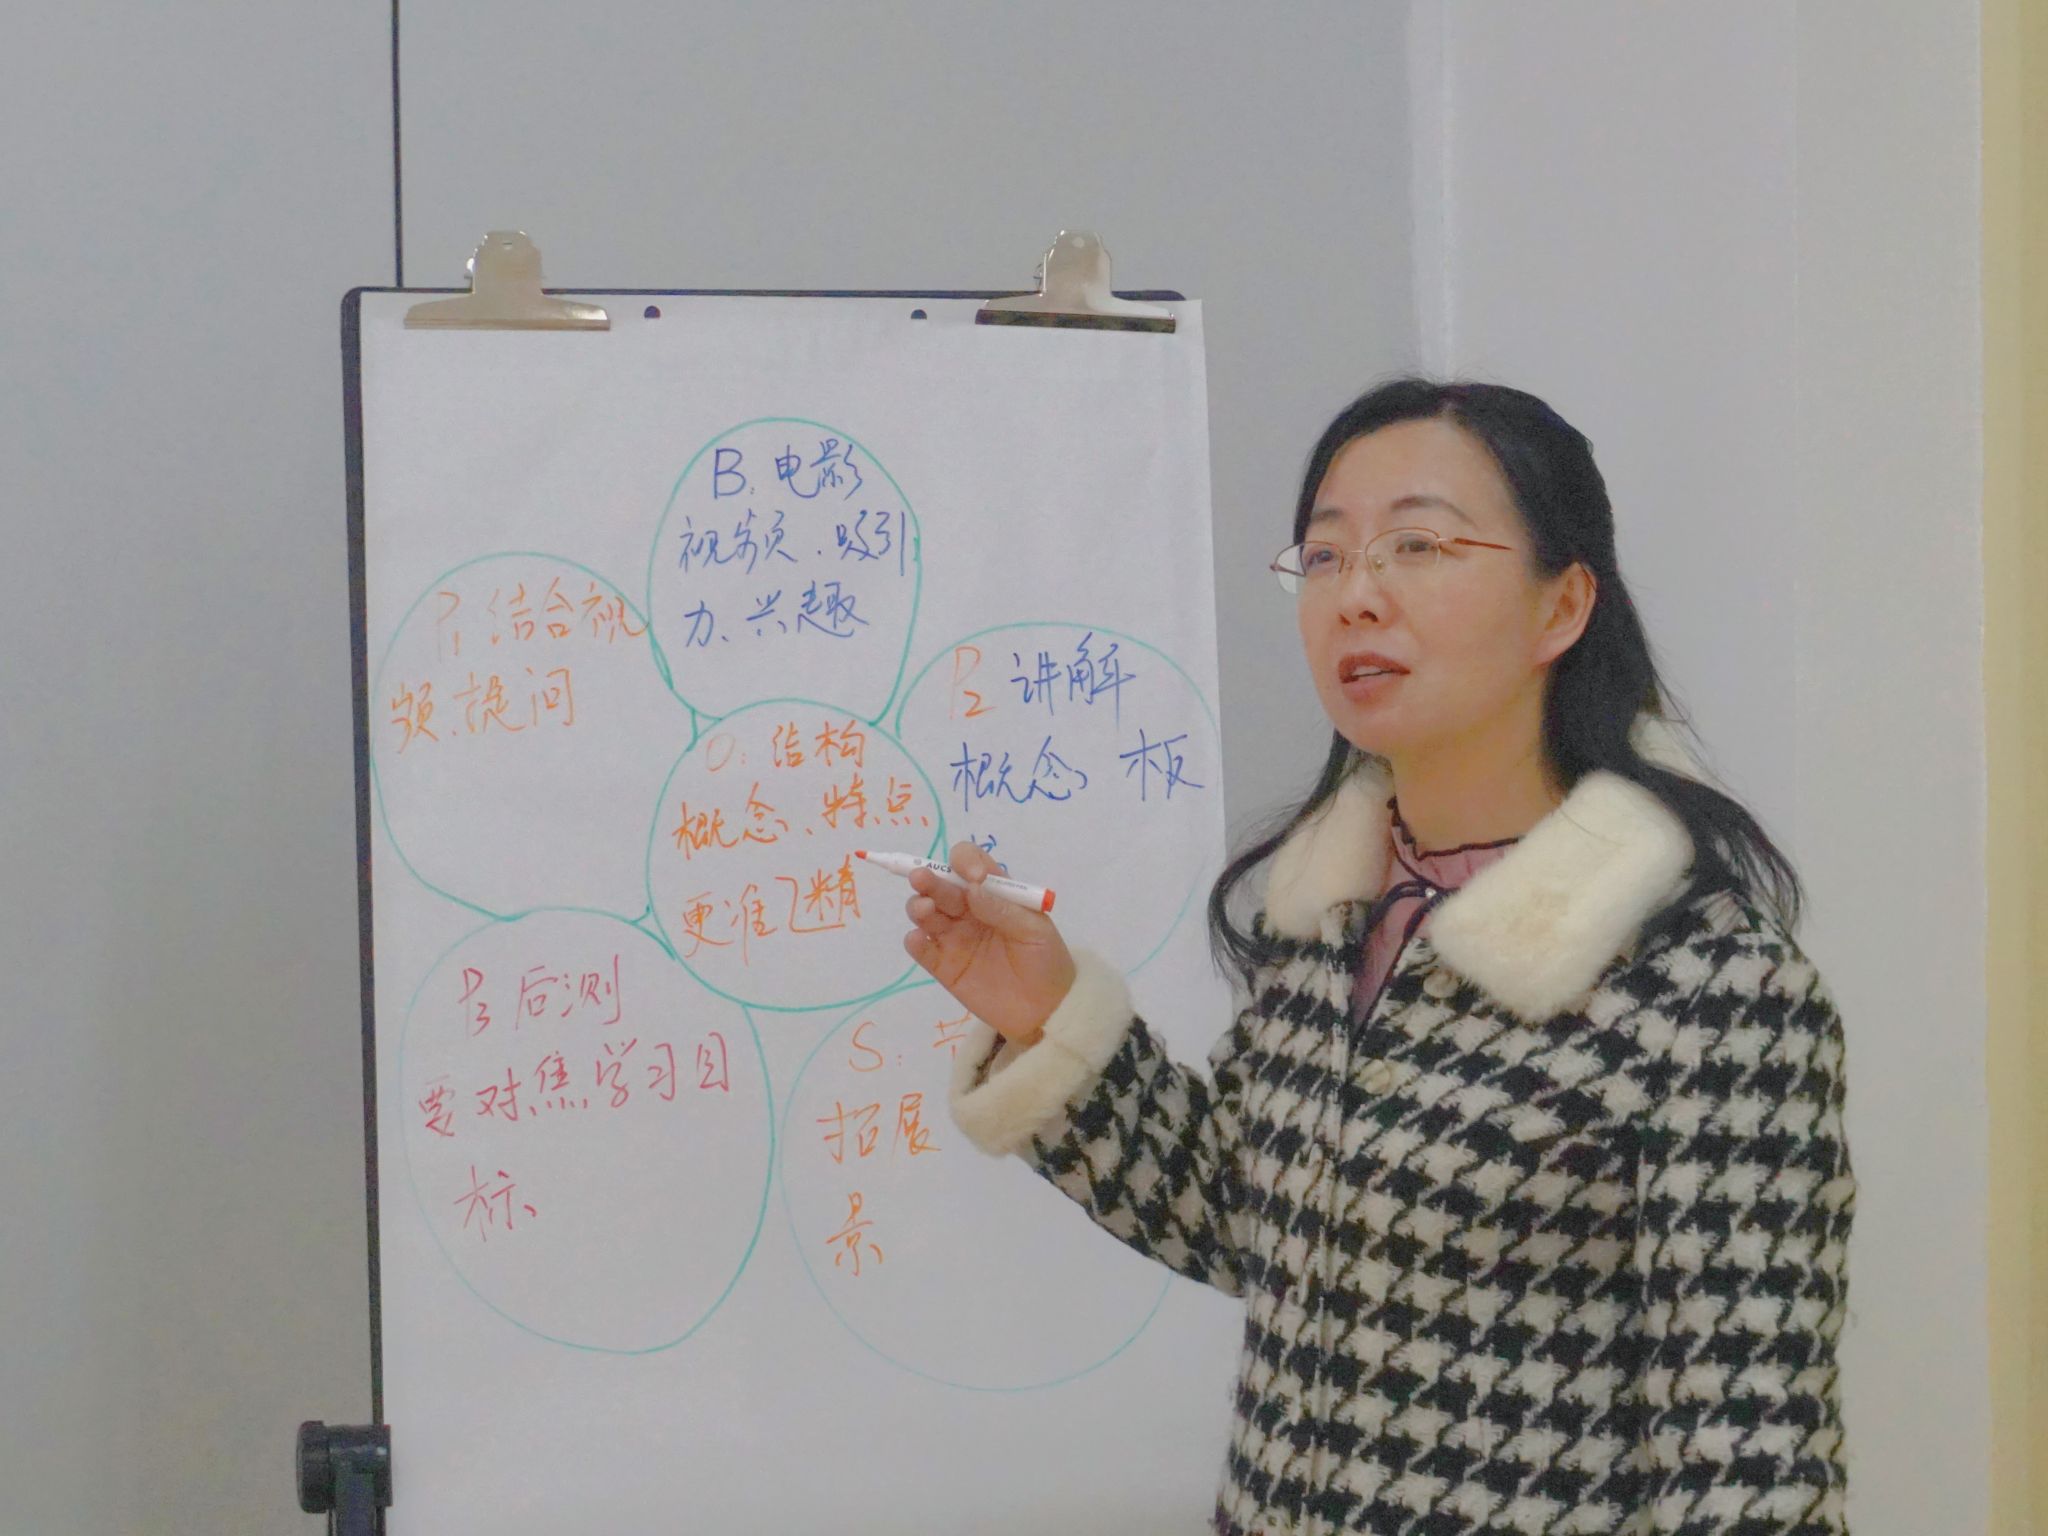 B: 电影
视频、吸引
力、兴趣
P1 结合视
频、提问
P2 讲解
概念, 板
O: 结构
概念、特点
更准 精
P3 后测
要对焦学习目
标
S:
拓展
景
AUCS